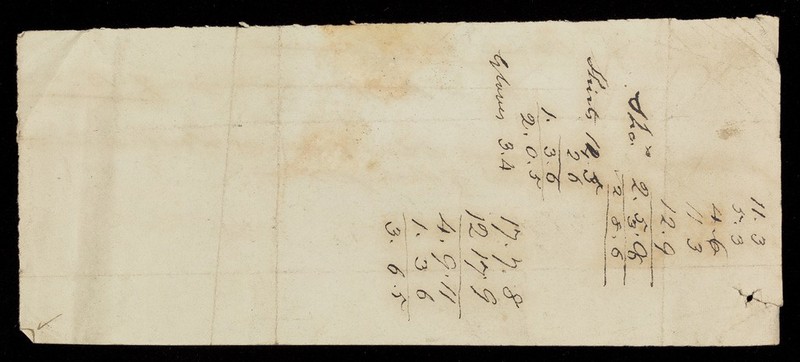 11. 3
5. 3
4. 6
11 3
12. 9
2 8. 6
Shirts
2 6
1. 3. 6
2. 0. 5
Gloves 3. 4
17. 7. 8
12 17. 9
4. 9. 11
1. 3 6
3. 6. 5